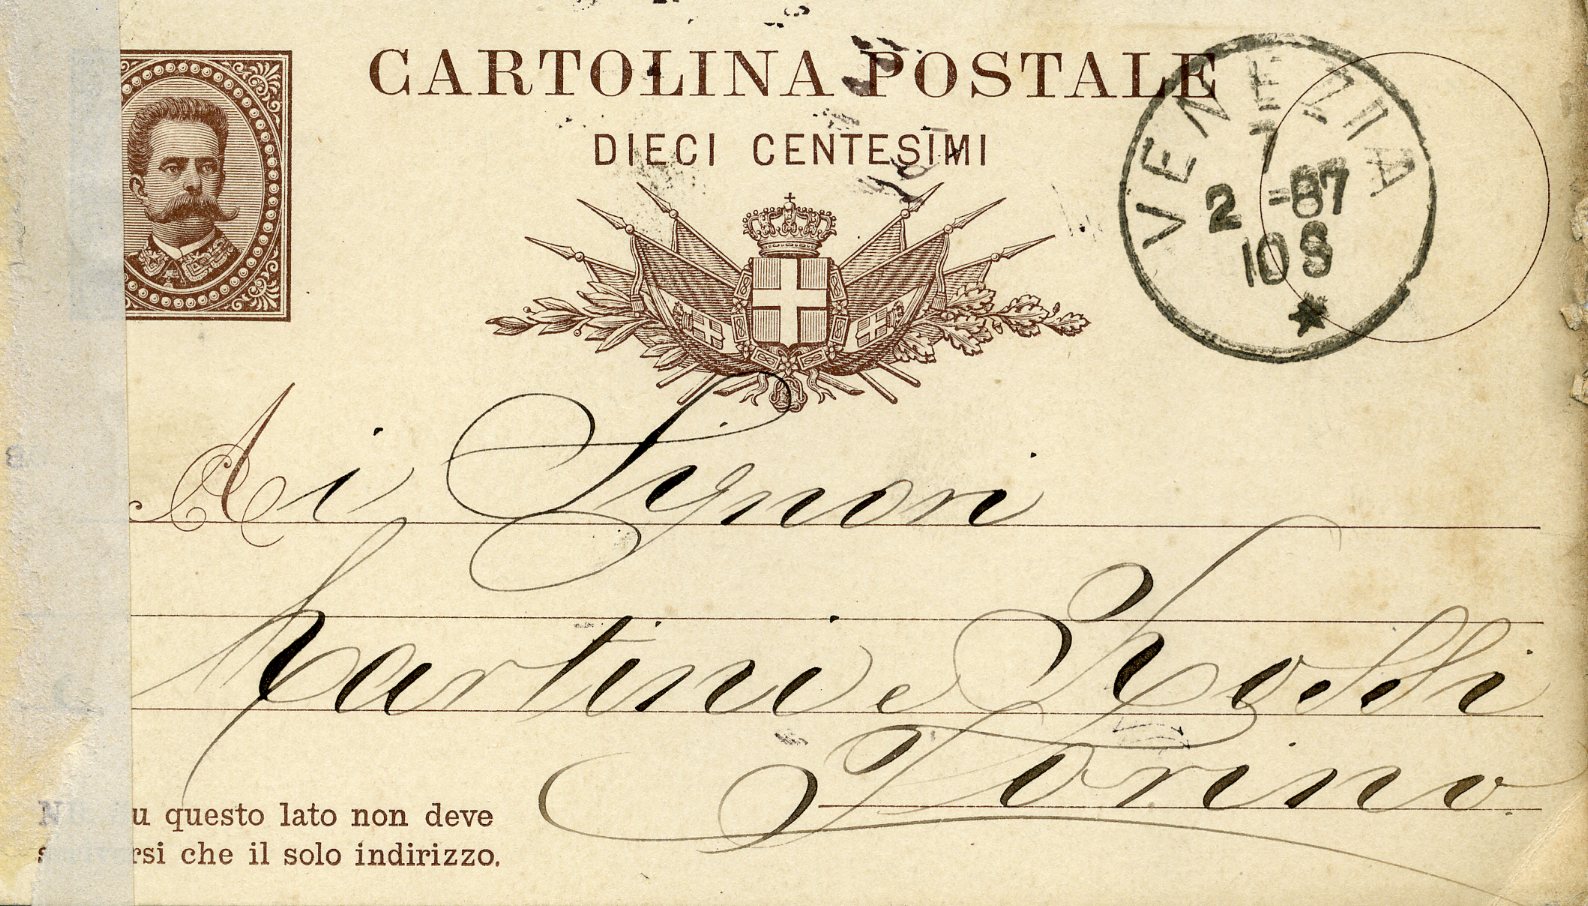 CARTOLINA POSTALE
DIECI CENTESIMI
VENEZIA
7
2 -87
10 S
Ai Signori
Martini e Rossi
Torino
u questo lato non deve
rsi che il solo indirizzo.